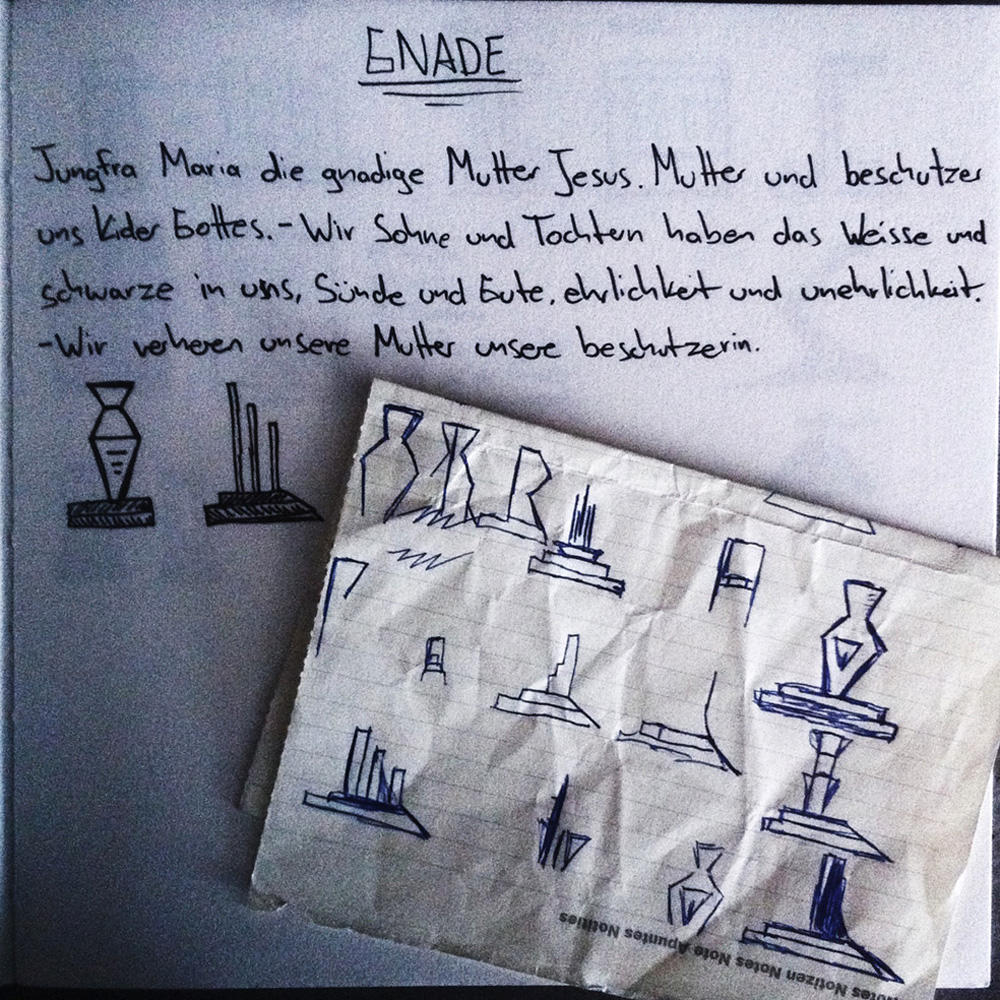 GNADE
Jungfra Maria die gnadige Mutter Jesus. Mutter und beschutzer
uns Kider Gottes.-Wir Sohne und Tochten haben das Weisse und
schwarze in uns, Sünde und Gute, ehrlichkeit und unehrlichkeit.
-Wir verheren unsere Mutter unsere beschutzerin.
Notes Notizen Notes Note Apuntes Notities